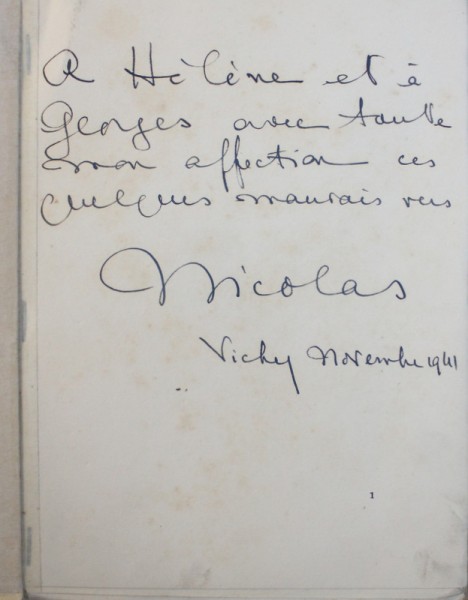 A Hélène et à
Georges avec toute
mon affection ces
quelques mauvais vers
Nicolas
Vichy Novembre 1941
1